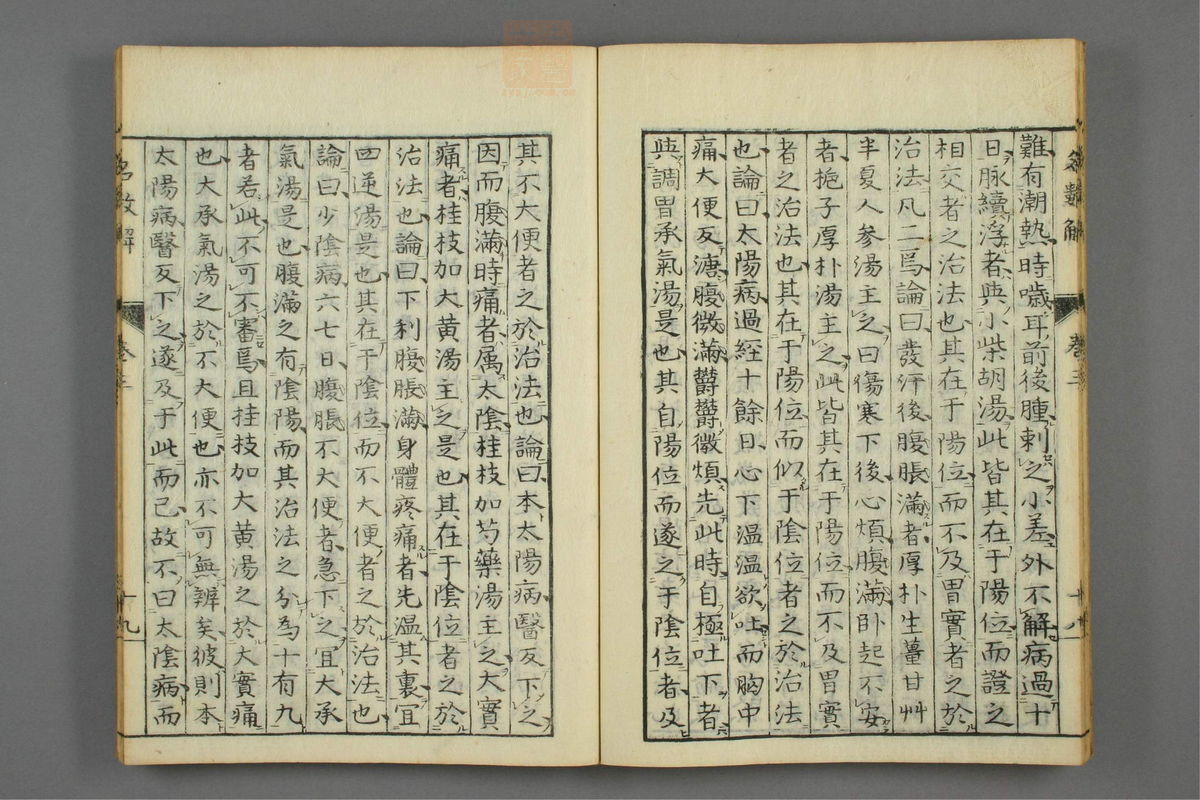 難有潮熱時噦耳前後腫刺之小差外不解病過十
日脉續浮者與小柴胡湯此皆其在于陽位而證之
相交者之治法也其在于陽位而不及胃實者之於
治法凡二焉論曰發汗後腹脹滿者厚朴生薑甘艸
半夏人參湯主之曰傷寒下後心煩腹滿臥起不安
者梔子厚朴湯主之此皆其在于陽位而不及胃實
者之治法也其在于陽位而似于陰位者之於治法
也論曰太陽病過經十餘日心下溫溫欲吐而胸中
痛大便反溏腹微滿鬱鬱微煩先此時自極吐下者
與調胃承氣湯是也其自陽位而遂之于陰位者及
其不大便者之於治法也論曰本太陽病醫反下之
因而腹滿時痛者属太陰桂枝加芍藥湯主之大實
痛者桂枝加大黃湯主之是也其在于陰位者之於
治法也論曰下利腹脹滿身體疼痛者先温其裏宜
四逆湯是也其在于陰位而不大便者之於治法也
論曰少陰病六七日腹脹不大便者急下之宜大承
氣湯是也腹滿之有陰陽而其治法之分為十有九
者若此不可不審焉且桂枝加大黃湯之於大實痛
也大承氣湯之於不大便也亦不可無辨矣彼則本
太陽病醫反下之遂及于此而已故不曰太陰病而
卷三
十九